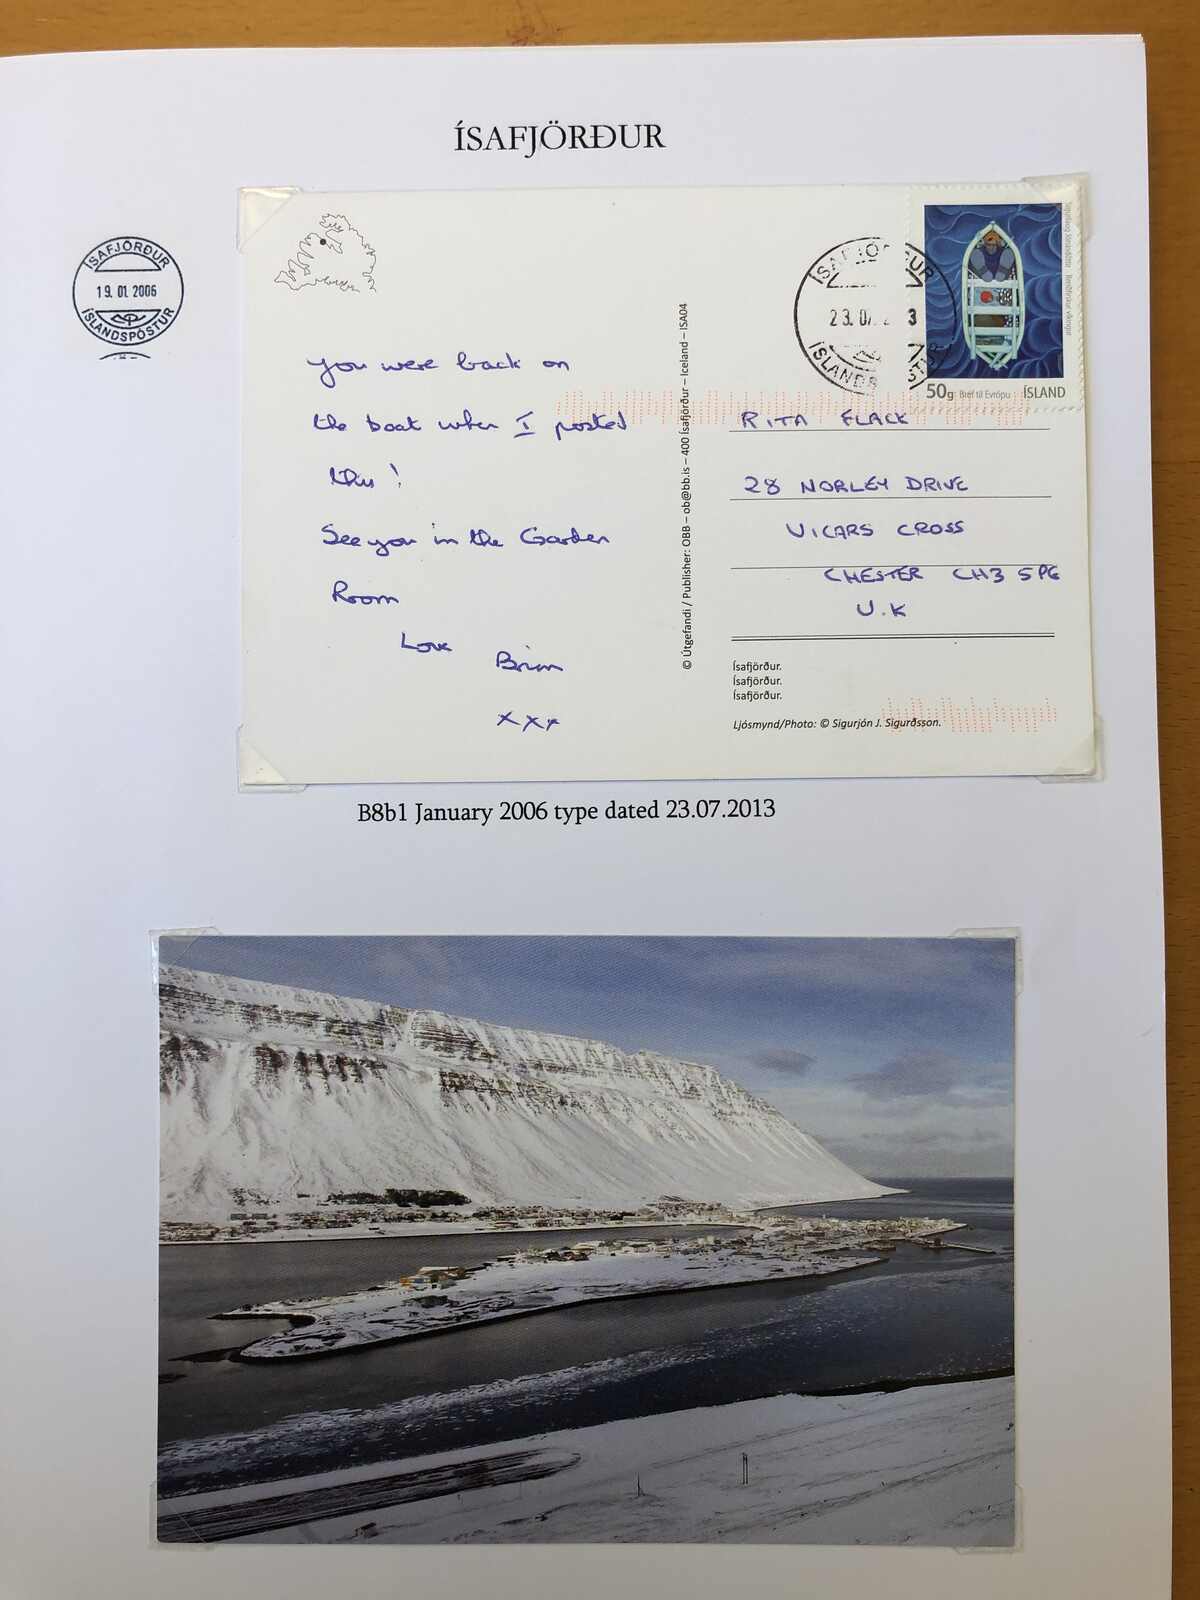 ÍSAFJÖRÐUR
ÍSAFJÖRÐUR
19. 01. 2006
ÍSLANDSPÓSTUR
ÍSAFJÖRÐUR
23. 07. 3
ÍSLANDSPÓSTUR
Sigurlaug Jónasdóttir Reiðfirskur víkingur
50g Bréf til Evrópu ÍSLAND
you were back on
the boat when I posted
this!
See you in the Garden
Room
Love Brian
xxx
© Útgefandi / Publisher: OBB – ob@bb.is – 400 Ísafjörður – Iceland – ISA04
RITA FLACK
28 NORLEY DRIVE
VICARS CROSS
CHESTER CH3 5PG
U.K
Ísafjörður.
Ísafjörður.
Ísafjörður.
Ljósmynd/Photo: © Sigurjón J. Sigurðsson.
B8b1 January 2006 type dated 23.07.2013